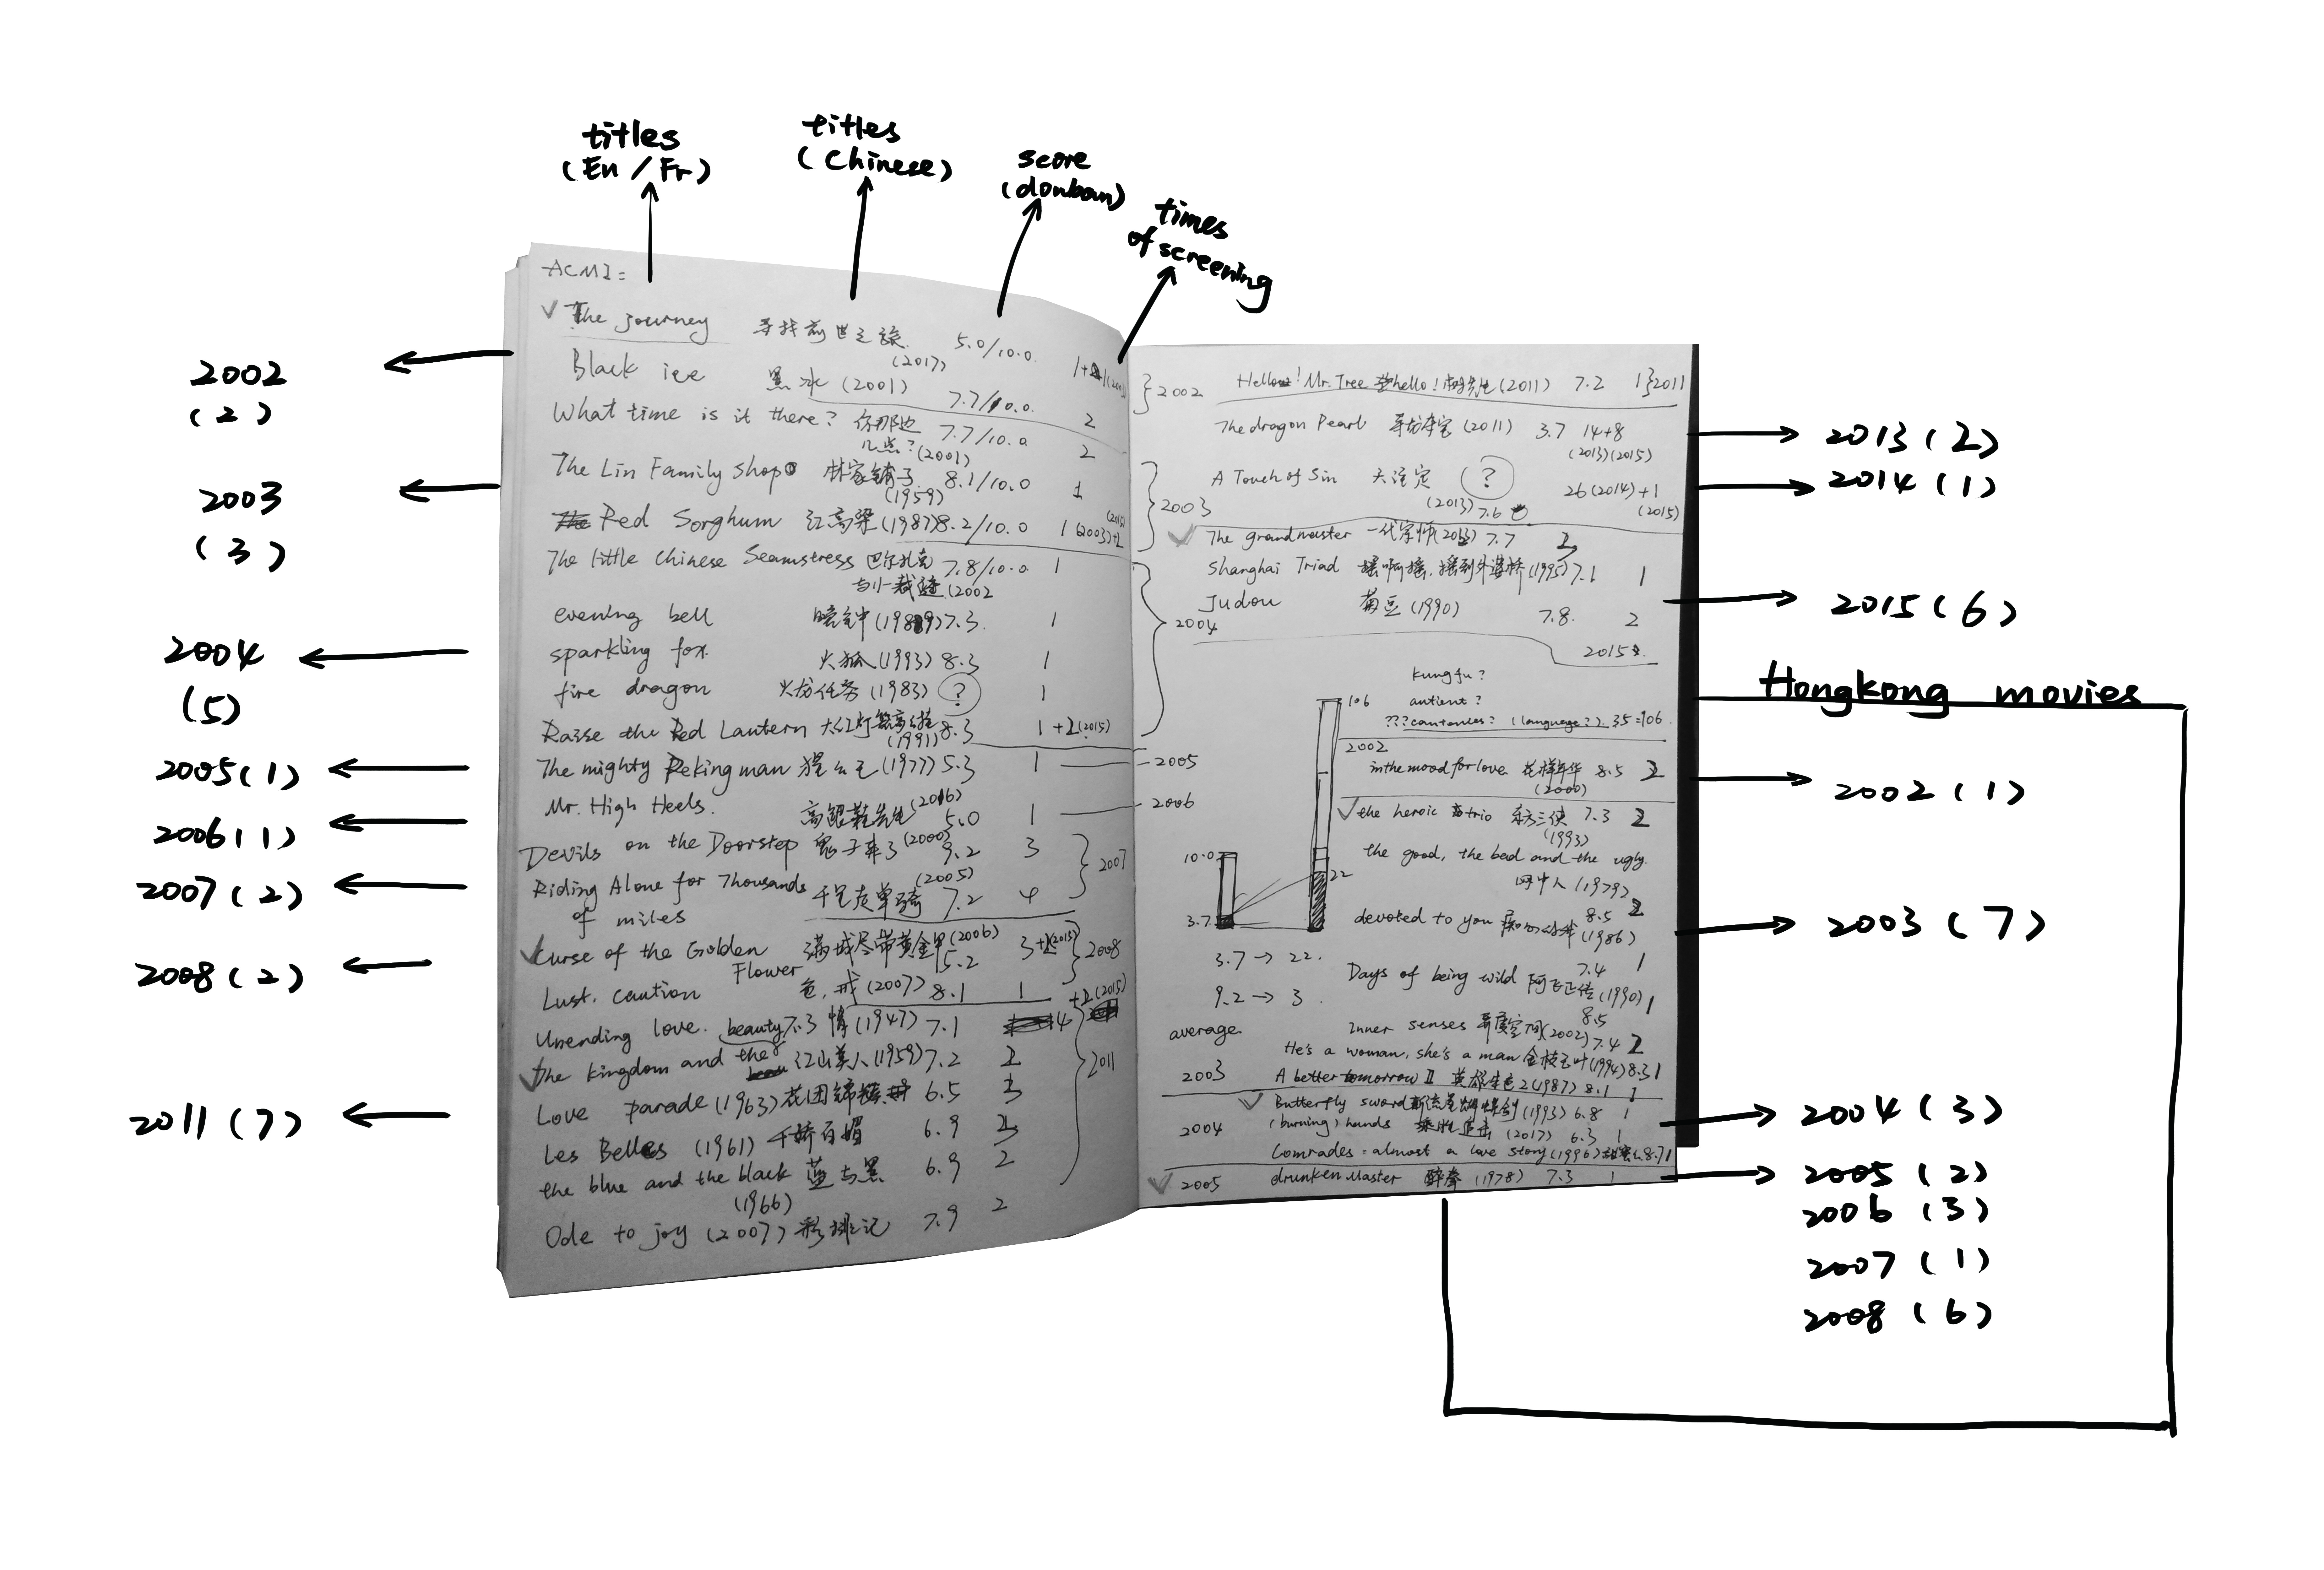 titles
(En / Fr)
titles
(Chinese)
score
(douban)
times
of screening
ACMI:
The journey 寻找前世之旅 (2017) 5.0/10.0
Black ice 黑冰 (2001) 7.7/10.0 2
What time is it there? 你那边几点? (2001) 7.7/10.0 2
The Lin Family Shop 林家铺子 (1959) 8.1/10.0 1
Red Sorghum 红高粱 (1987) 8.2/10.0 1 (2003)
The little Chinese Seamstress 巴尔扎克与小裁缝 (2002 7.8/10.0 1
evening bell 晚钟 (1989) 7.3 1
sparkling fox 火狐 (1993) 8.3 1
fire dragon 火龙任务 (1983) ? 1
Raise the Red Lantern 大红灯笼高高挂 (1991) 8.3 1 +2 (2015)
The mighty Peking man 猩猩王 (1977) 5.3 1
Mr. High Heels. 高跟鞋先生 (2016) 5.0 1
Devils on the Doorstep 鬼子来了 (2000) 9.2 3
Riding Alone for Thousands of miles 千里走单骑 (2005) 7.2 4
Curse of the Golden Flower 满城尽带黄金甲 (2006) 5.2 3
Lust. caution 色,戒 (2007) 8.1 1
Unending love. 情 (1947) 7.1 4
The kingdom and the beauty 江山美人 (1959) 7.2 2
Love parade (1963) 花团锦簇 6.5
Les Belles (1961) 千娇百媚 6.9 2
the blue and the black (1966) 蓝与黑 6.9 2
Ode to joy (2007) 彩排记 7.9 2
2002
2003
2004
2005
2006
2007
2008
2011
Hello! Mr. Tree hello!树先生 (2011) 7.2 1 } 2011
The dragon Pearl 寻龙夺宝 (2011) 3.7 14+8
(2013) (2015)
A Touch of Sin 天注定 (2013) ? 7.6 26 (2014) +1
(2015)
The grandmaster 一代宗师 (2013) 7.7 2
Shanghai Triad 摇啊摇,摇到外婆桥 (1995) 7.1 1
Judou 菊豆 (1990) 7.8. 2
2015
kungfu?
antient?
???cantonese? (language?) 35=106
106
22
10.0
3.7
3.7 → 22.
9.2 → 3.
average
2002
in the mood for love 花样年华 (2000) 8.5 2
the heroic trio 东方三侠 (1993) 7.3 2
the good, the bad and the ugly.
网中人 (1979) 8.5 2
devoted to you 痴心的我 (1986) 7.4 1
Days of being wild 阿飞正传 (1990) 8.5 1
Inner senses 异度空间 (2002) 7.4 2
He's a woman, she's a man 金枝玉叶 (1994) 8.3 1
2003
A better tomorrow II 英雄本色2 (1987) 8.1 1
Butterfly sword 新流星蝴蝶剑 (1993) 6.8 1
2004
(burning) hands (2017) 6.3 1
Comrades: almost a love story (1996) 甜蜜蜜 8.7 1
2005
drunken Master 醉拳 (1978) 7.3 1
2002
(2)
2003
(3)
2004
(5)
2005 (1)
2006 (1)
2007 (2)
2008 (2)
2011 (7)
2013 (2)
2014 (1)
2015 (6)
Hongkong movies
2002 (1)
2003 (7)
2004 (3)
2005 (2)
2006 (3)
2007 (1)
2008 (6)